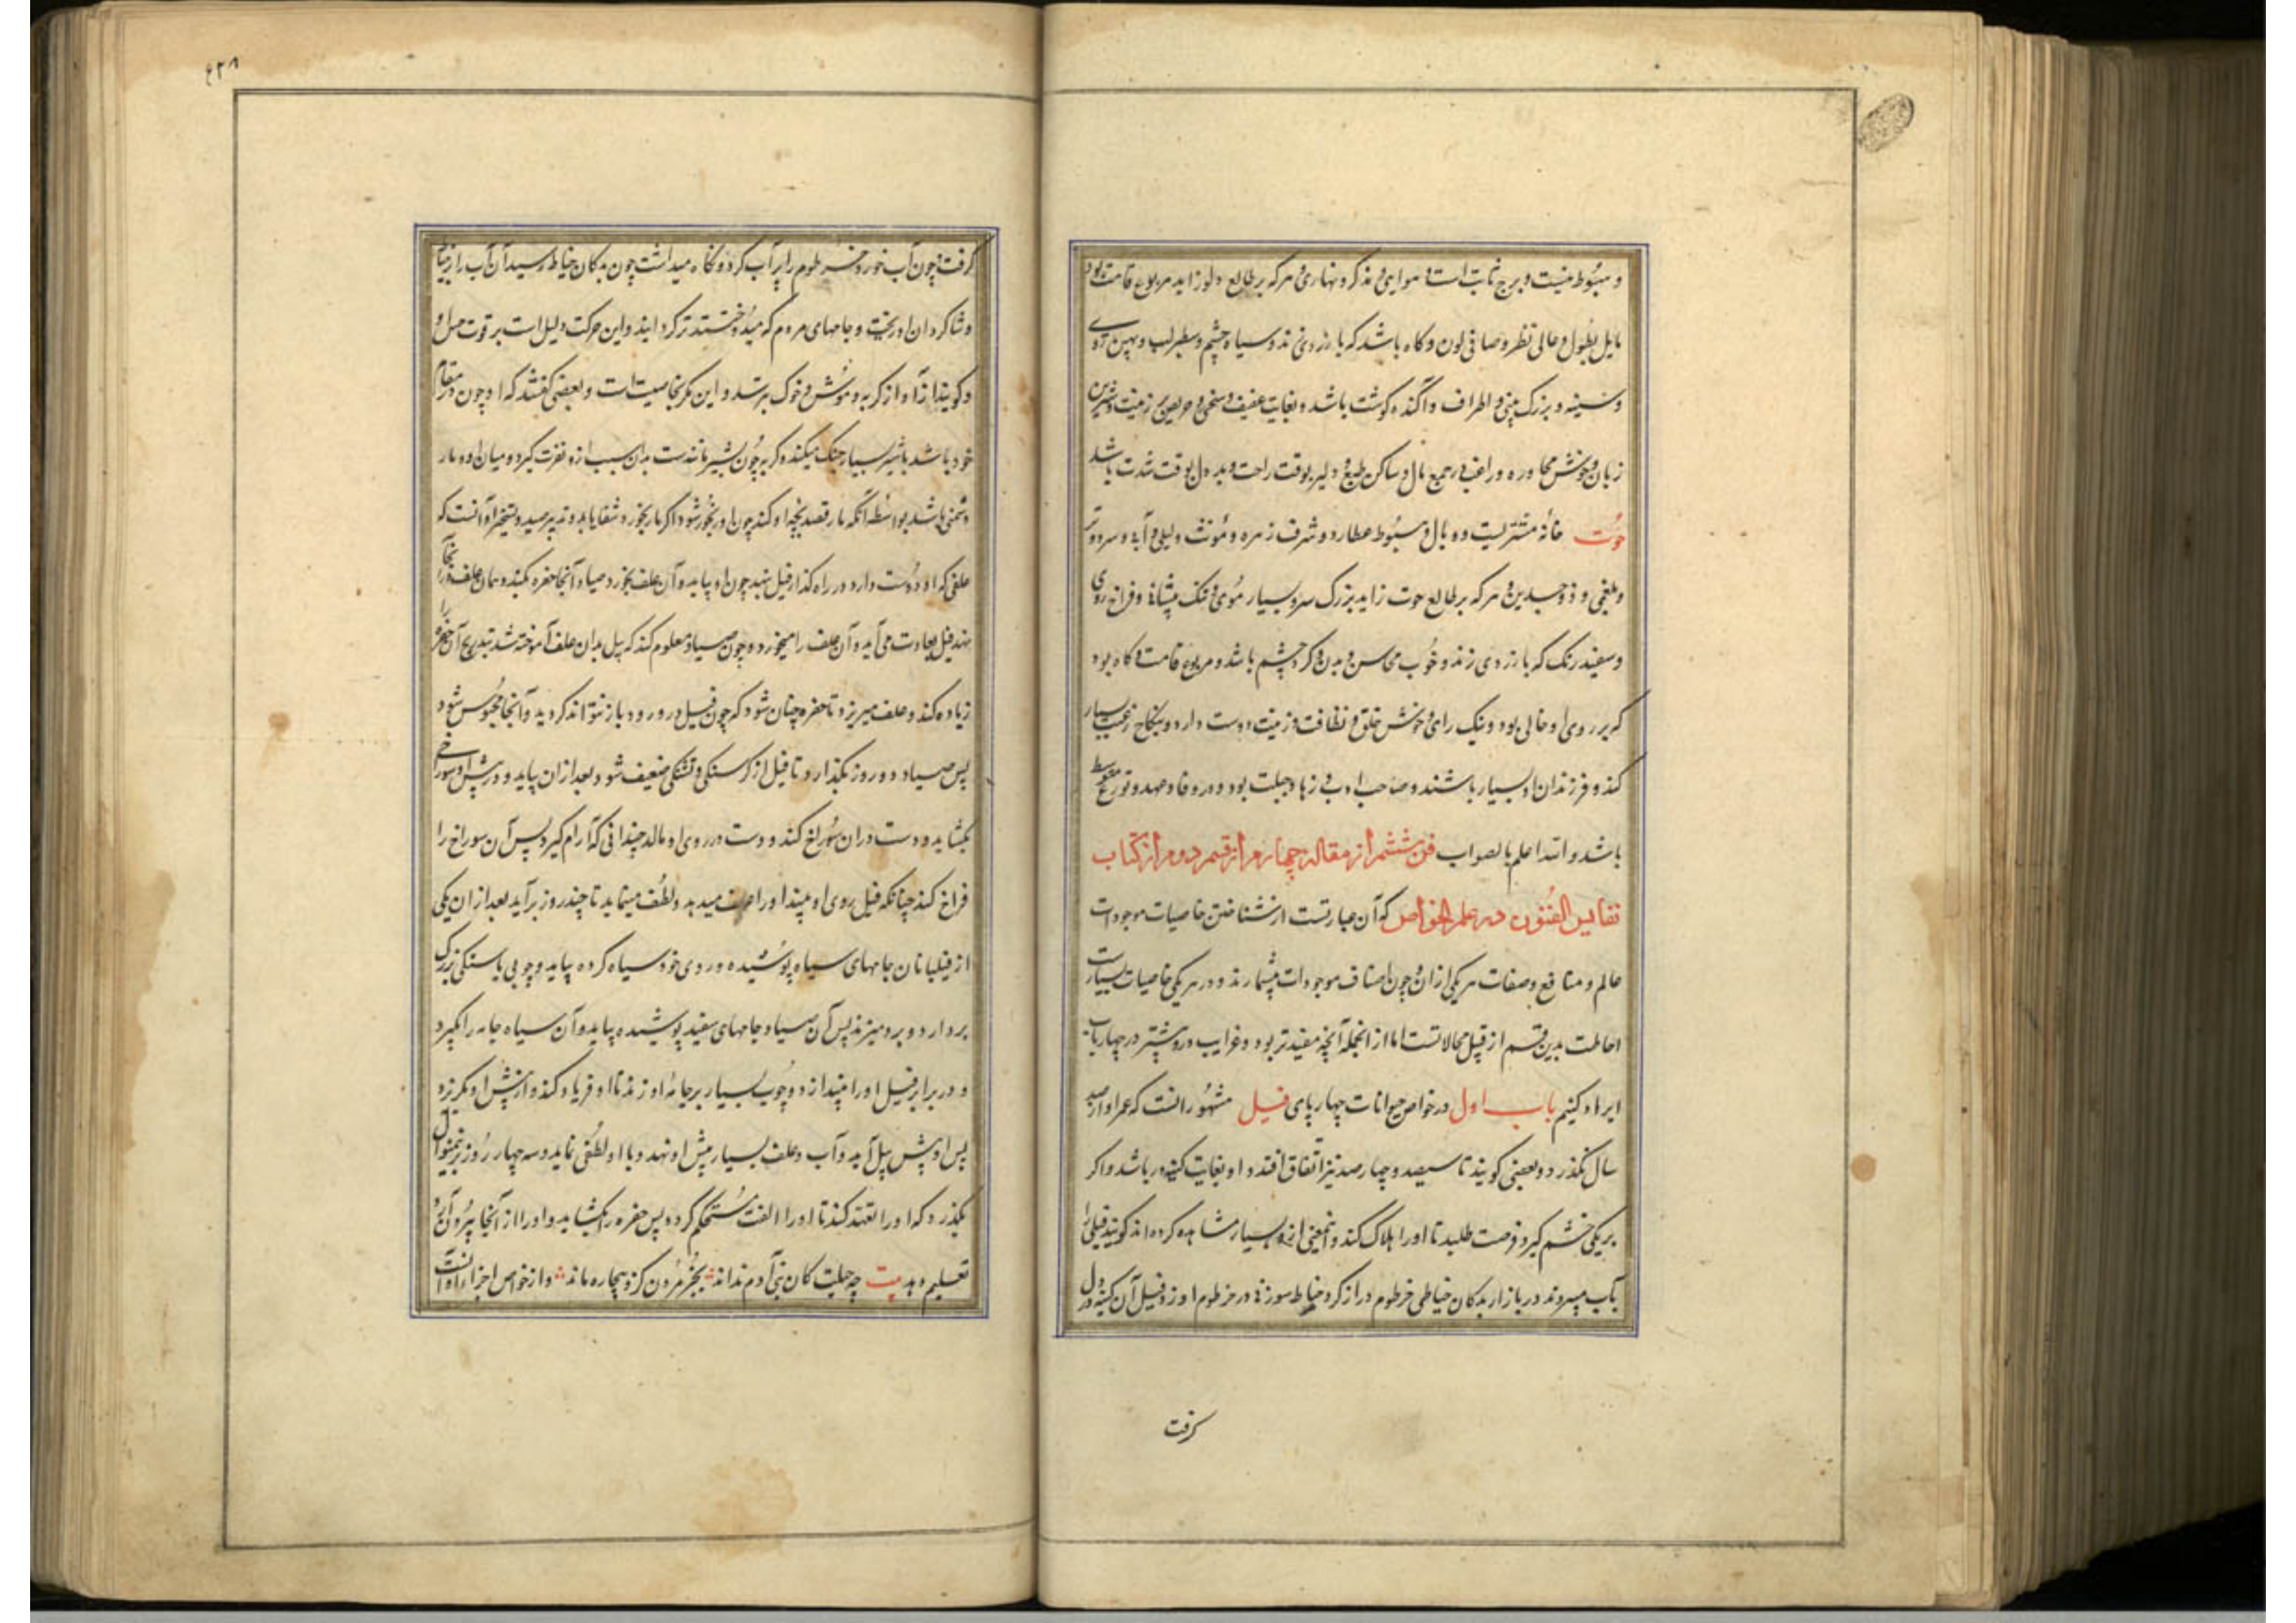 و هبوط نیست و برج ثابت است و هوایی و مذکر و نهاری و هرکه بر طالع دلو زاید مربوع قامت بود
مایل بطول و عالی نظر و صافی لون و کاه باشد که بازردی زند و سیاه چشم و سطبر لب و پهن روی
و سینه و بزرک بینی و اطراف و آکنده کوشت باشد و بغایت عفیف و سخی و حریص بر زینت و شیرین
زبان و خوش محاوره و راغب در جمع مال و ساکن طبع و دلیر بوقت راحت و بد دل بوقت شدت باشد
حوت خانهٔ مشتریست و وبال و هبوط عطارد و شرف زهره و مؤنث و لیلی و آبی و سرد و تر
و بلغمی و ذو جسدین و هرکه بر طالع حوت زاید بزرک سر و بسیار موی و تنک پیشانی و فراخ روی
و سفید رنک که بازردی زند و خوب محاسن و بدن و کرد چشم باشد و مربوع قامت و کاه بود
که بر روی او خالی بود و نیک رای و خوش خلق و نظافت و زینت دوست دارد و بنکاح رغبت بسیار
کند و فرزندان او بسیار باشند و صاحب ادب و زها و جبلت بود و در وفا و عهد و تورع متوسط
باشد و الله اعلم بالصواب فن ششم از مقاله چهارم از قسم دوم از کتاب
نفایس الفنون در علم الخواص که آن عبارتست از شناختن خاصیات موجودات
عالم و منافع و صفات هر یکی ازان و چون اصناف موجودات بیشمارند و در هر یکی خاصیات بسیارست
احاطت بدین قسم از قبیل محالاتست اما از انجمله آنچه مفیدتر بود و غرایب درو بیشتر در چهار باب
ایراد کنیم باب اول در خواص حیوانات چهار پای فیل مشهور انست که عمر او از صد
سال نکذرد و بعضی کویند تا سیصد و چهار صد نیز اتفاق افتد و او بغایت کینه ور باشد و اکر
بر یکی خشم کیرد فرصت طلبد تا او را هلاک کند و اینمعنی ازو بسیار مشاهده کرده اند کویند فیلی را
بآب میبردند در بازار بدکان خیاطی خرطوم دراز کرد خیاط سوزنی در خرطوم او زد فیل آن کینه در دل
کرفت
۴۲۸
کرفت و چون آب خورد خرطوم را پر آب کرد و نکاه میداشت چون بدکان خیاط رسید آن آب را بر خیاط
و شاکردان او ریخت و جامهای مردم که میدوختند تر کردانید و این حرکت دلیل است بر قوت حس او
و کویند از آواز کربه و موش و خوک بترسد و این مکر بخاصیت است و بعضی کفتند که او چون در مقام
خود باشد باشیر بسیار جنک میکند و کربه چون بشیر مانندست بدان سبب ازو نفرت کیرد و میان او و مار
دشمنی باشد بواسطه آنکه مار قصد بچه او کند چون او رنجور شود اکر مار بخورد شفا یابد و تدبیر صید و تسخیر او آنست که
علفی که او دوست دارد در راه کذار فیل بنهد چون او بیاید و آن علف بخورد صیاد آنجا حفره بکند و همان علف در آنجا
نهد فیل بعادت می آید و آن علف را میخورد و چون صیاد معلوم کند که پیل بدان علف آموخته شد بتدریج آن حفره را
زیاده کند و علف میریزد تا حفره چنان شود که چون فیل در رود باز نتواند کردید و آنجا محبوس شود
پس صیاد دو روز بکذارد تا فیل از کرسنکی و تشنکی ضعیف شود بعد ازان بیاید و در پیش او سوراخی
بکشاید و دست دران سوراخ کند و دست در روی او مالد چندانی که آرام کیرد پس آن سوراخ را
فراخ کند چنانکه فیل روی او بیند او را علف میدهد و لطف مینماید تا چند روز برآید بعد ازان یکی
از فیلبانان جامهای سیاه پوشیده و روی خود سیاه کرده بیاید و چوبی یا سنکی بزرک
بردارد و برو میزند پس آن صیاد جامهای سفید پوشیده بیاید و آن سیاه جامه را بکیرد
و در برابر فیل او را بیندازد و چوب بسیار بر جامهٔ او زند تا او فریاد کند و از پیش او بکریزد
پس او پیش پیل آید و آب و علف بسیار پیش او نهد و با او لطفی نماید و سه چهار روز برینمنوال
بکذرد که او را تعهد کند تا او را الفت مستحکم کردد پس حفره را بکشاید و او را از آنجا بیرون آرد و
تعلیم دهد بیت چه حیلت کان بنی آدم نداند بجز مردن کزو بیچاره ماند و از خواص اجزاء او آنست